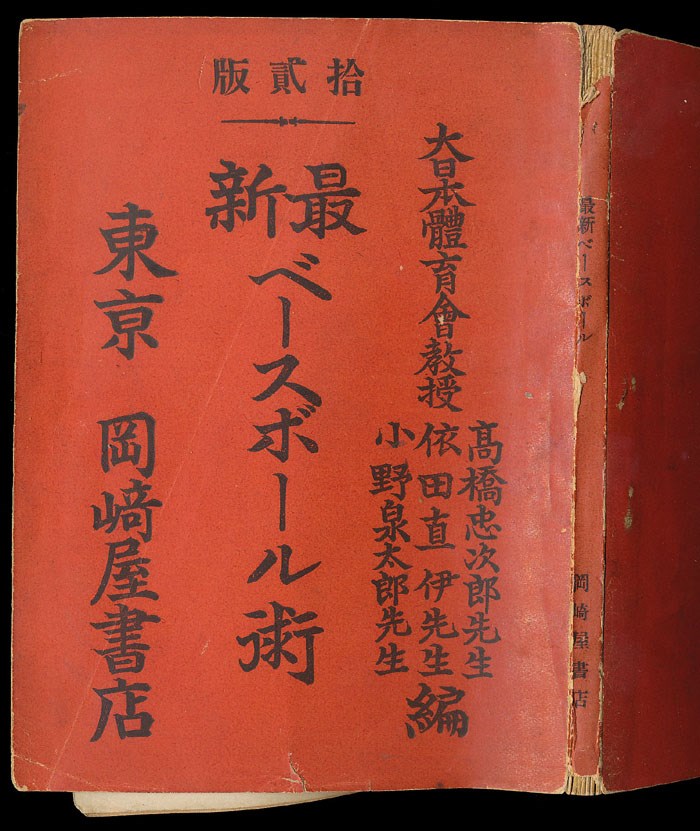 拾貳版
大日本體育會教授
高橋忠次郎先生
依田直伊先生
小野泉太郎先生
編
最新
ベースボール術
東京 岡﨑屋書店
最新ベースボール
岡﨑屋書店